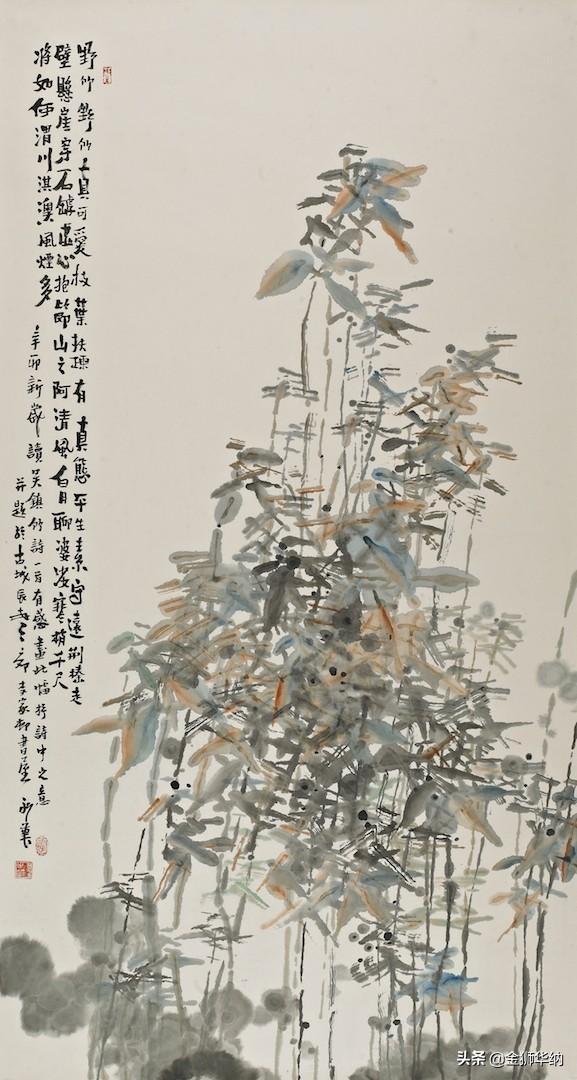 野竹野竹真可愛枝葉扶疎有真態平生素守遠荆榛走
壁懸崖穿石罅虛心抱節山之阿清風白月聊婆娑寒梢千尺
將如何渭川淇澳風煙多 辛卯新歲讀吳鎮竹詩一首有感畫此幅抒詩中之意
并題於古城長安
头条 @金狮华纳